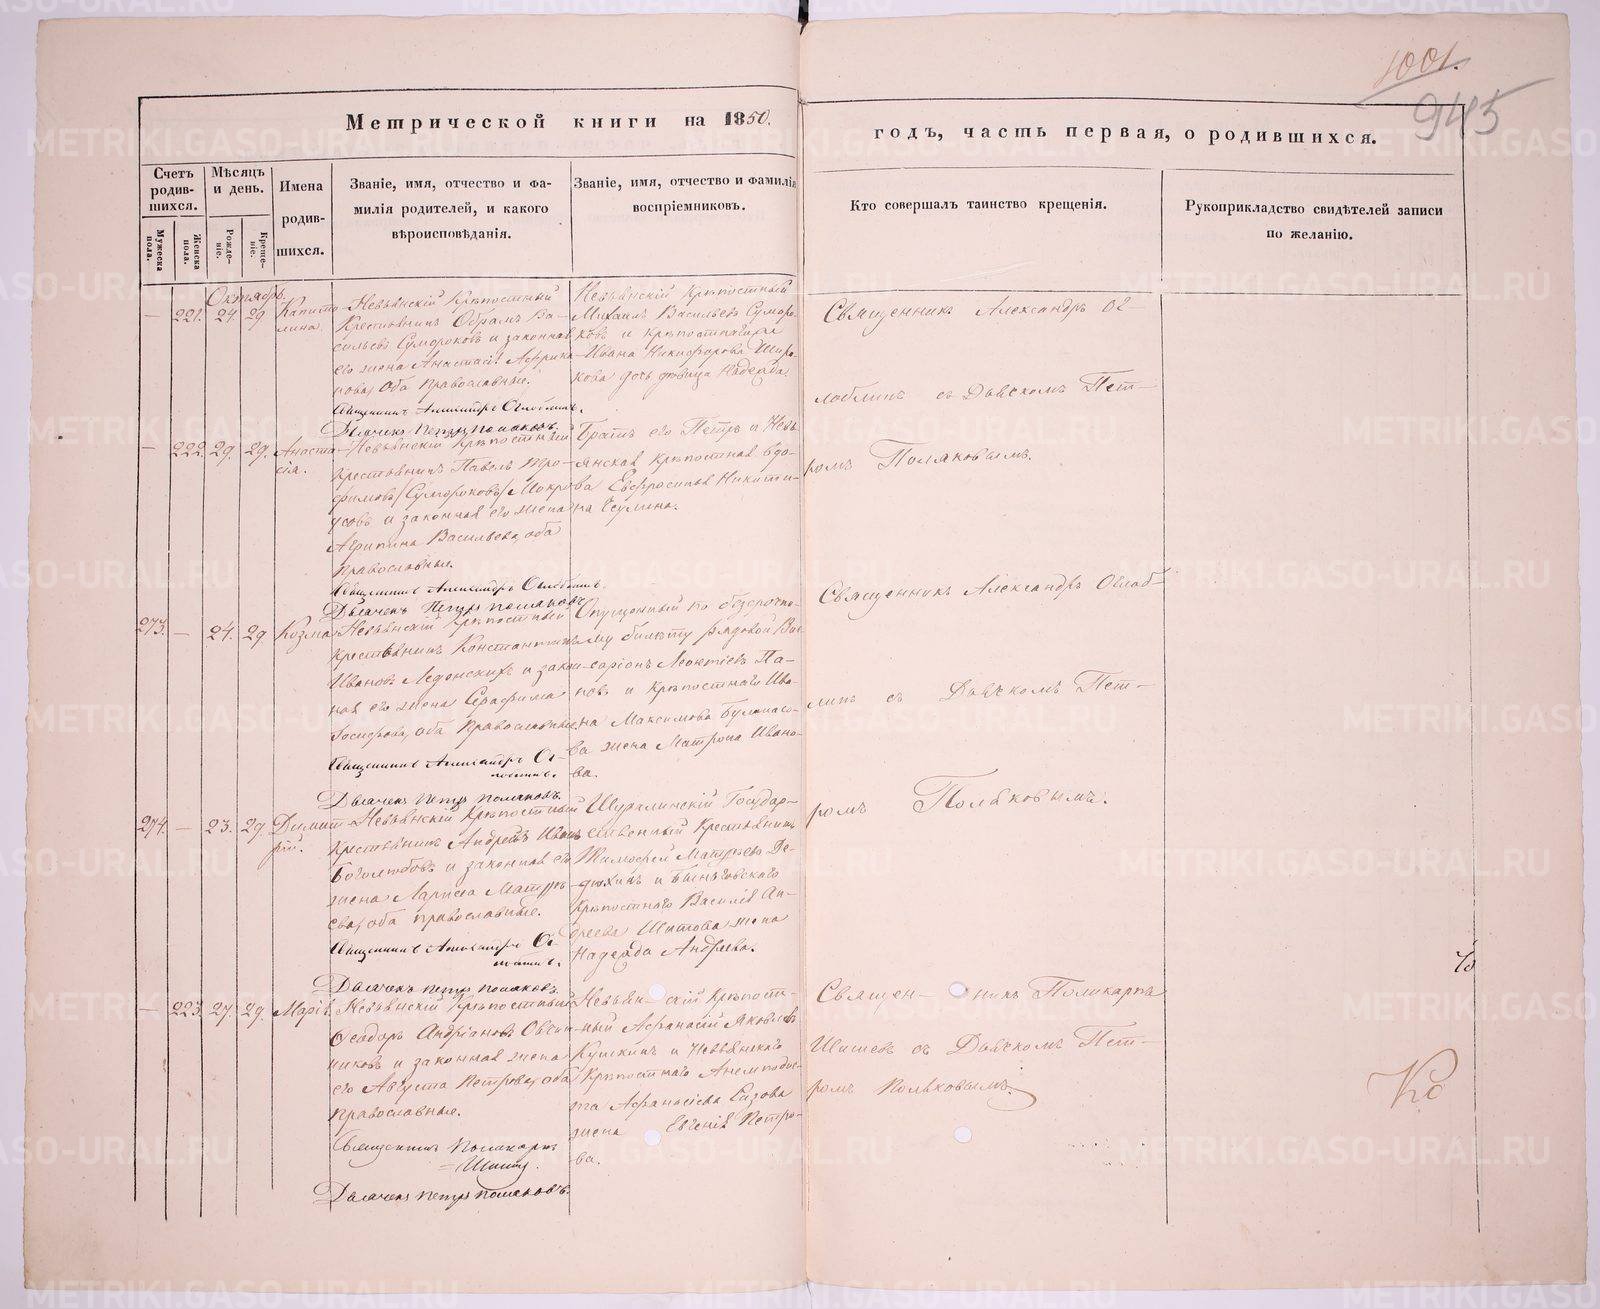 1001.
945
Метрической книги на 1850.
годъ, часть первая, о родившихся.
Счетъ родив-шихся.
Мужеска пола.
Женска пола.
Мѣсяцъ и день.
Рожде-ніе.
Креще-ніе.
Имена родив-шихся.
Званіе, имя, отчество и фа-
милія родителей, и какого
вѣроисповѣданія.
Званіе, имя, отчество и фамилія
воспріемниковъ.
Кто совершалъ таинство крещенія.
Рукоприкладство свидѣтелей записи
по желанію.
Октябрь.
— 221. 24 29 Капито-
лина.
Невьянскій Крѣпостный
Крестьянинъ Абрамъ Ва-
сильевъ Сумороковъ и законная
его жена Анастасія Африка-
нова, оба православные.
Священникъ Александръ Оглоблинъ.
Дьячекъ Петръ Поляковъ.
Невьянскій Крѣпостный
Михаилъ Васильевъ Суморо-
ковъ и крѣпостнаго
Ивана Никифорова Широ-
кова дочь дѣвица Надежда.
Священникъ Александръ Ог-
лоблинъ съ Дьячкомъ Пет-
ромъ Поляковымъ.
— 222. 29. 29. Анаста-
сія.
Невьянскій Крѣпостный
крестьянинъ Павелъ Тро-
фимовъ /Сумороковъ/ Мокро-
усовъ и законная его жена
Агрипина Васильева, оба
православные.
Священникъ Александръ Оглоблинъ.
Дьячекъ Петръ Поляковъ.
Братъ его Петръ и Невь-
янская крѣпостная вдо-
ва Евфросинья Никити-
на Есулина.
273. — 24. 29 Козма.
Невьянскій Крѣпостный
крестьянинъ Константинъ
Ивановъ Ледонскихъ и закон-
ная его жена Серафима
Іосифова, оба православные.
Священникъ Александръ Ог-
лоблинъ.
Дьячекъ Петръ Поляковъ.
Опущенный по безсрочно-
му билету рядовой Вис-
саріонъ Леонтіевъ Па-
новъ и крѣпостнаго Ива-
на Максимова Булнасо-
ва жена Матрона Ивано-
ва.
Священникъ Александръ Оглоб-
линъ съ Дьячкомъ Пет-
ромъ Поляковымъ.
274. — 23. 29. Димит-
рій.
Невьянскій Крѣпостный
крестьянинъ Андрей Ивановъ
Боголюбовъ и законная его
жена Лариса Матвѣ-
ева, оба православные.
Священникъ Александръ Ог-
лоблинъ.
Дьячекъ Петръ Поляковъ.
Шуралинскій Государ-
ственный Крестьянинъ
Тимофей Матвѣевъ Де-
дюхинъ и Быньговскаго
крѣпостнаго Василія Ан-
дреева Шитова жена
Надежда Андреева.
— 223. 27. 29. Марія.
Невьянскій Крѣпостный
Ѳеодоръ Андріановъ Овчин-
никовъ и законная жена
его Августа Петрова, оба
православные.
Священникъ Поликарпъ
Шишевъ.
Дьячекъ Петръ Поляковъ.
Невьянскій Крѣпост-
ный Афанасій Яковлевъ
Кушкинъ и Невьянскаго
Крѣпостнаго Анемподис-
та Афанасіева Сизова
жена Евгенія Петро-
ва.
Священникъ Поликарпъ
Шишевъ съ Дьячкомъ Пет-
ромъ Поляковымъ.